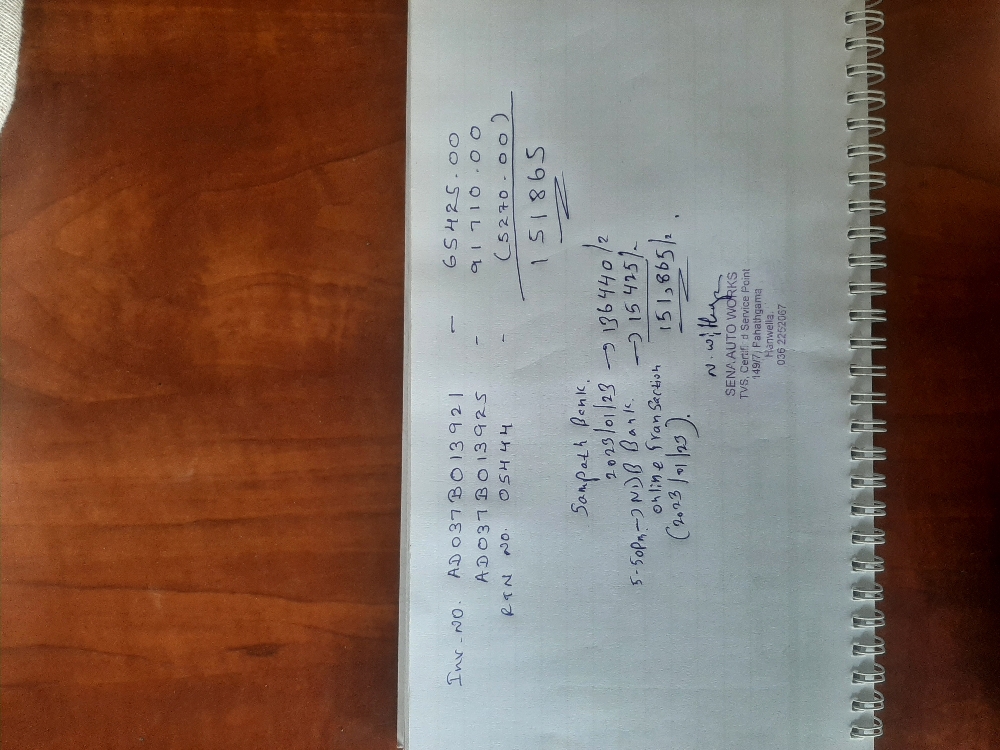 Inv-NO. AD037B013921 — 65425.00
AD037B013925 - 91710.00
RTN NO. 05444 - (5270.00)
151865
Sampath Bank.
2023/01/23 → 136440/=
5.50pm → NDB Bank. → 15425/=
online transection 151,865/=.
(2023/01/23).
SENA AUTO WORKS
TVS, Certified Service Point
149/7, Pahathgama
Hanwella.
036 2252067